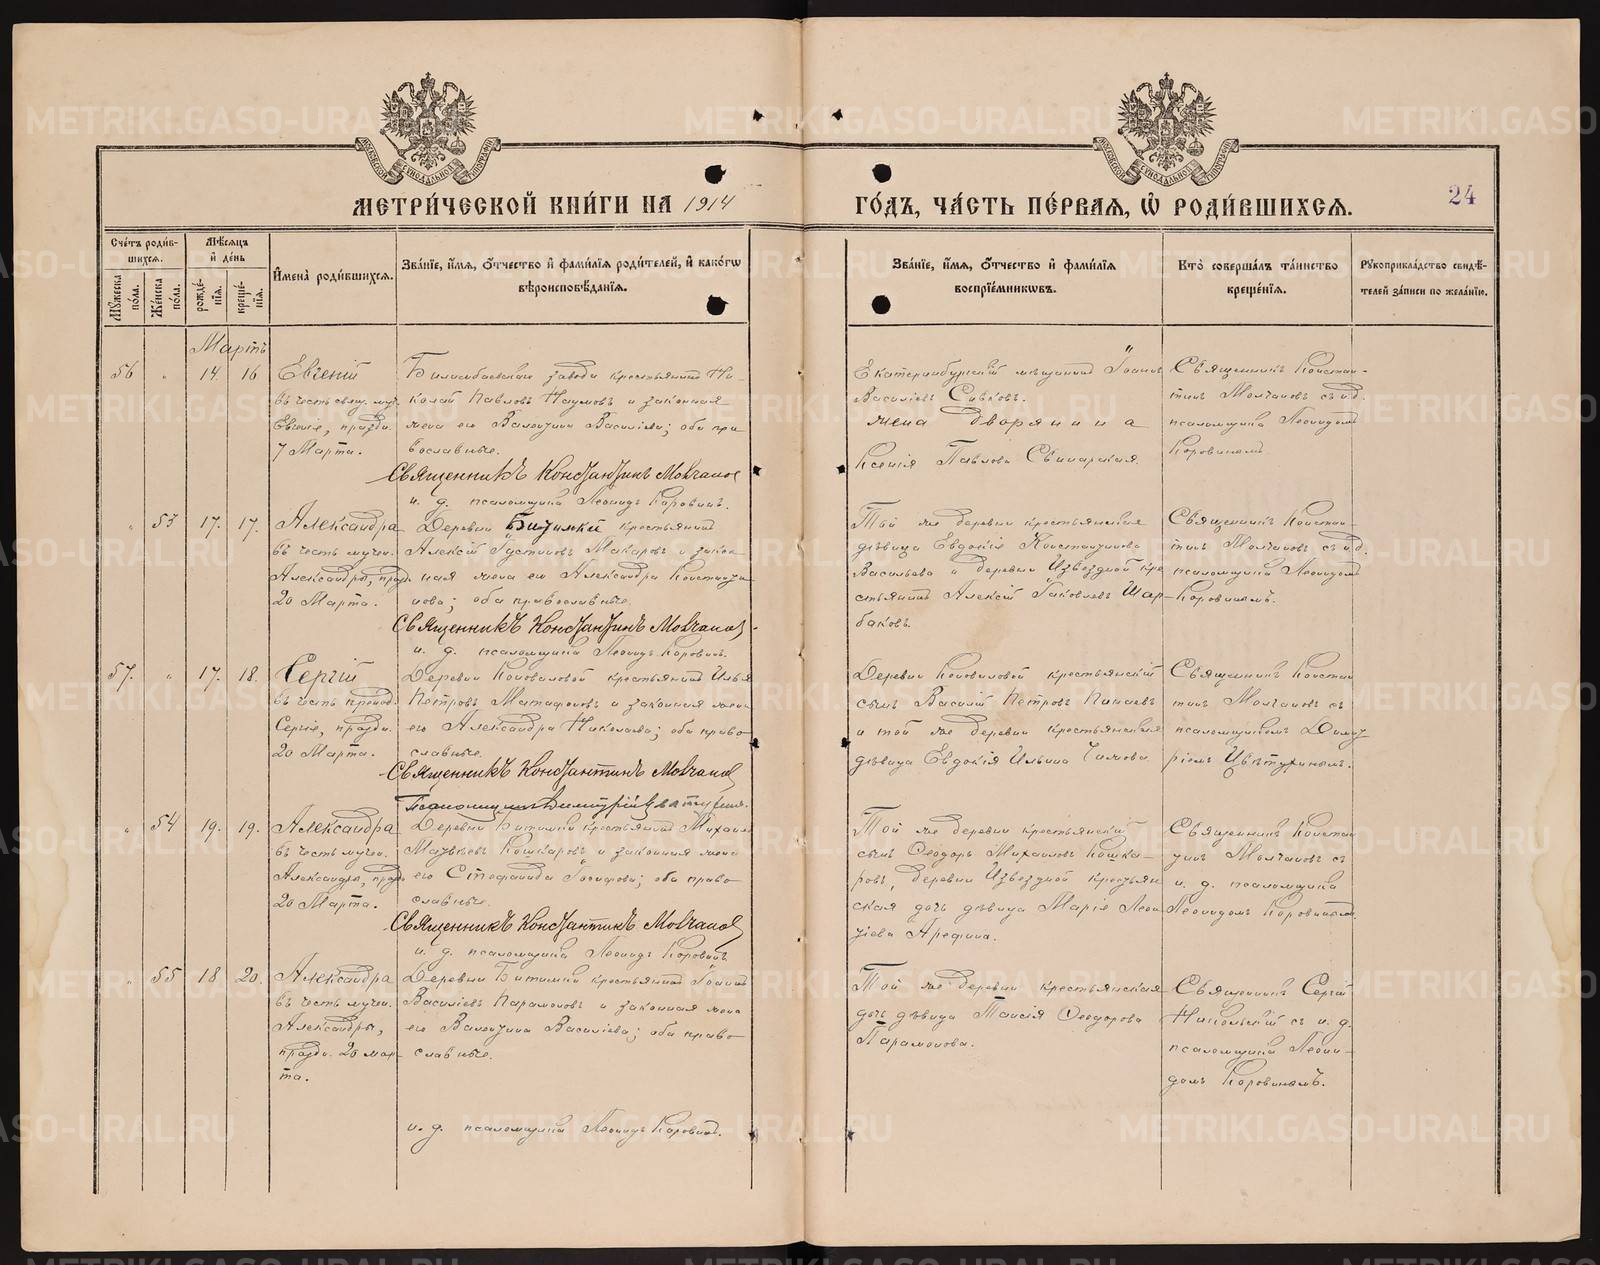 МЕТРИ́ЧЕСКОЙ КНИ́ГИ НА 1914
ГО́ДЪ, ЧА́СТЬ ПЕ́РВАЯ, Ѡ РОДИ́ВШИХСЯ.
24
Сче́тъ роди́в-
шихся.
Мꙋ́жеска по́ла.
Же́нска по́ла.
Мѣ́сяцъ
и́ де́нь
рожде́-
нїя.
креще́-
нїя.
И́мена̀ роди́вшихся.
Зва́нїе, и́мя, о́тчество и́ фами́лїя роди́телей, и́ како́гѡ
вѣроисповѣ́данїя.
Зва́нїе, и́мя, о́тчество и́ фами́лїя
воспрїе́мниковъ.
Кто̀ соверша́лъ та́инство
креще́нїя.
Рꙋкоприкла́дство свидѣ́-
телей за́писи по жела́нїю.
Мартъ
56 " 14. 16.
Евгеній
въ честь свящ. муч.
Евгенія, праздн.
7 Марта.
Билимбаевскаго завода крестьянинъ Ни-
колай Павловъ Наумовъ и законная
жена его Валентина Васильева; оба пра-
вославные.
Священникъ Константинъ Молчановъ
и. д. псаломщика Леонидъ Коровинъ.
Екатеринбургскій мѣщанинъ Іоаннъ
Васильевъ Сивковъ.
жена дворянина
Ксенія Павлова Свинарская.
Священникъ Констан-
тинъ Молчановъ съ и.д.
псаломщика Леонидомъ
Коровинымъ
" 53 17. 17.
Александра
въ честь мучен.
Александры, празд.
20 Марта.
Деревни Битимки крестьянинъ
Алексій Іустиновъ Макаровъ и закон-
ная жена его Александра Константи-
нова; оба православные.
Священникъ Константинъ Молчановъ.
и. д. псаломщика Леонидъ Коровинъ.
Той же деревни крестьянская
дѣвица Евдокія Константинова
Васильева и деревни Извездной кре-
стьянинъ Алексій Іаковлевъ Шар-
баковъ.
Священникъ Констан-
тинъ Молчановъ съ и.д.
псаломщика Леонидомъ
Коровинымъ.
57. " 17. 18.
Сергій
въ честь препод.
Сергія, праздн.
20 Марта.
Деревни Коноваловой крестьянинъ Илья
Петровъ и законная жена
его Александра Николаева; оба право-
славные.
Священникъ Константинъ Молчановъ
Псаломщикъ Димитрій Цвѣтухинъ.
Деревни Коноваловой крестьянскій
сынъ Василій Петровъ
и той же деревни крестьянская
дѣвица Евдокія Ильина
Священникъ Констан
тинъ Молчановъ съ
псаломщикомъ Димит
ріемъ Цвѣтухинымъ.
" 54 19. 19.
Александра
въ честь мучен.
Александры, празд.
20 Марта.
Деревни Битимки крестьянинъ Михаилъ
Матвѣевъ Кошкаровъ и законная жена
его Стефанида Іосифова; оба право-
славные.
Священникъ Константинъ Молчановъ
и. д. псаломщика Леонидъ Коровинъ.
Той же деревни крестьянскій
сынъ Ѳеодоръ Михаиловъ Кошка-
ровъ, деревни Извездной крестьян
ская дочь дѣвица Марія Леон
тіева Арефина.
Священникъ Констан
тинъ Молчановъ съ
и. д. псаломщика
Леонидомъ Коровинымъ.
" 55 18 20.
Александра
въ честь мучен.
Александры,
праздн. 20 мар-
та.
Деревни Битимки крестьянинъ Іоаннъ
Васильевъ Парамоновъ и законная жена
его Валентина Васильева; оба право-
славные.
и. д. псаломщика Леонидъ Коровинъ.
Той же деревни крестьянская
дочь дѣвица Таисія Ѳеодорова
Парамонова.
Священникъ Сергій
Никольскій съ и. д.
псаломщика Леони-
домъ Коровинымъ.
METRIKI.GASO-URAL.RU